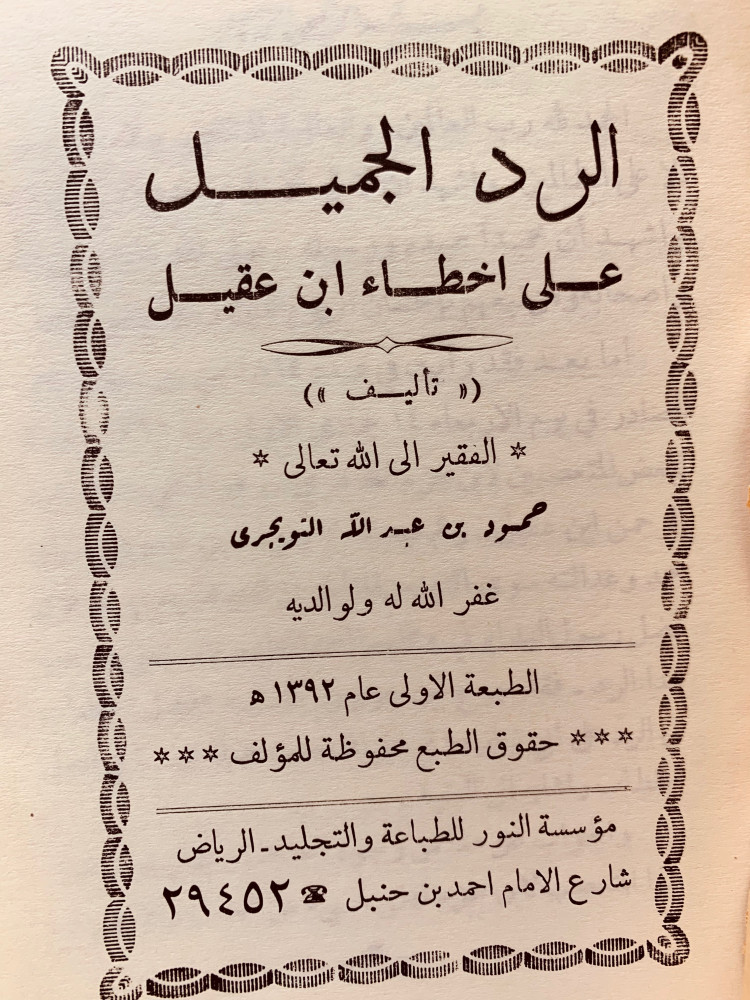 الرد الجميل
على اخطاء ابن عقيل
(« تأليف »)
* الفقير الى الله تعالى *
حمود بن عبد الله التويجرى
غفر الله له ولوالديه
الطبعة الاولى عام ١٣٩٢ ه
*** حقوق الطبع محفوظة للمؤلف ***
مؤسسة النور للطباعة والتجليد ـ الرياض
شارع الامام احمد بن حنبل ☎ ٢٩٤٥٢